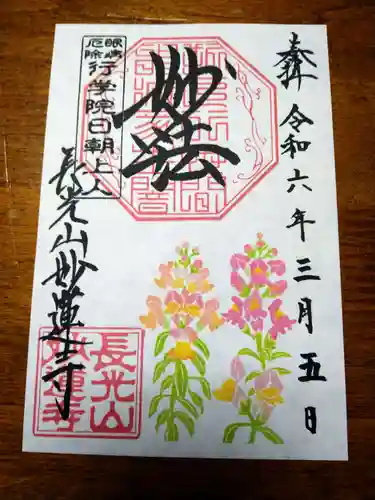 奉拝
令和六年三月五日
妙法
眼病
厄除
行学院日朝上人
長光山妙蓮寺
長光山
妙蓮寺